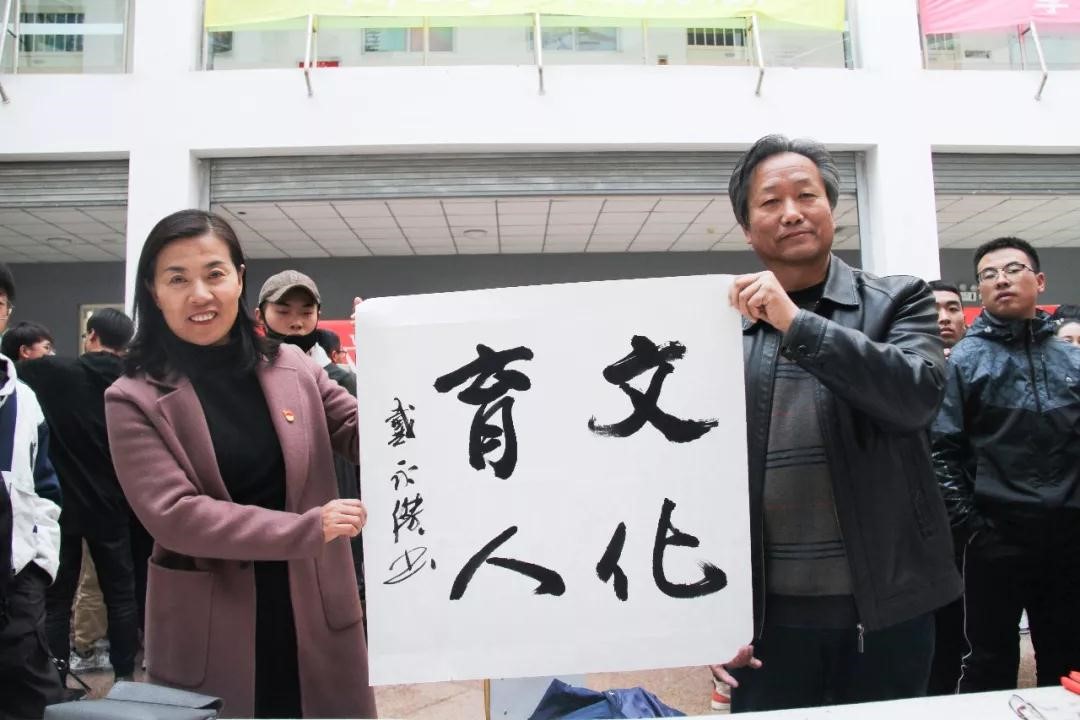 文化
育人
戴永杰书